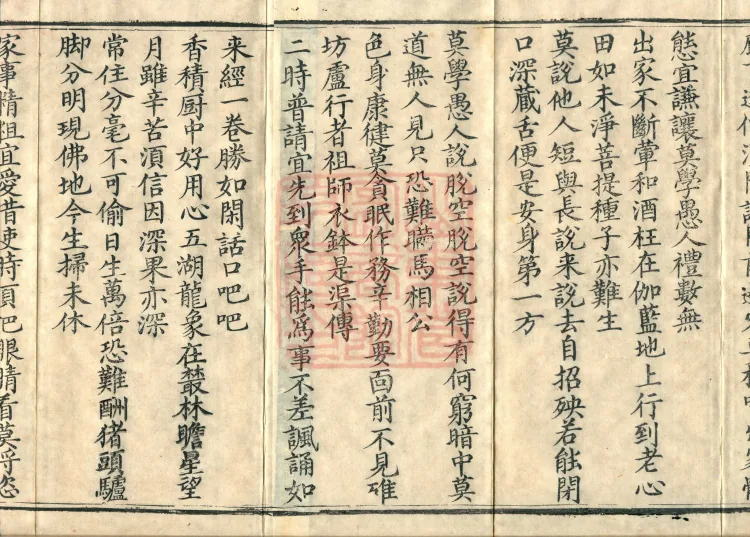 態宜謙讓莫學愚人禮數無
出家不斷葷和酒枉在伽藍地上行到老心
田如未淨菩提種子亦難生
莫說他人短與長說来說去自招殃若能閉
口深蔵舌便是安身第一方
莫學愚人說脫空脫空說得有何窮暗中莫
道無人見只恐難瞞馬相公
色身康健莫貪眠作務辛勤要向前不見碓
坊盧行者祖師衣鉢是渠傳
二時普請宜先到衆手能為事不差諷誦如
来經一卷勝如閑話口吧吧
香積厨中好用心五湖龍象在叢林瞻星望
月雖辛苦須信因深果亦深
常住分毫不可偷日生萬倍恐難酬猪頭驢
脚分明現佛地今生掃未休
家事精粗宜愛惜使時須把眼睛看莫將恣